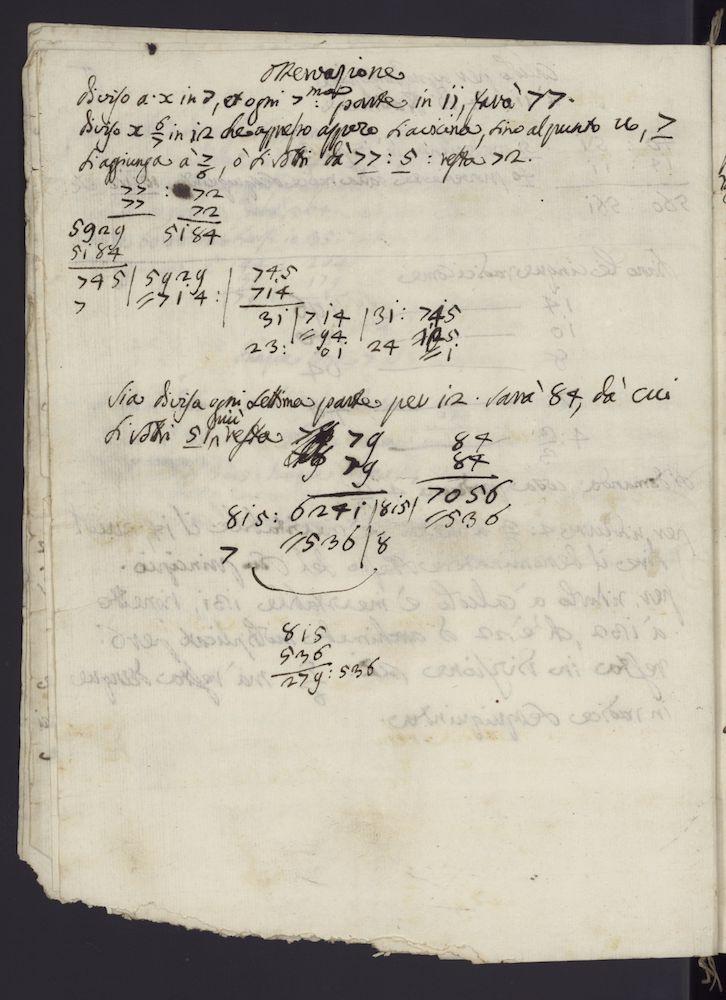 osservazione
diviso a·x in 7, et ogni 7.ma parte in 11, farà 77.
diviso x 6/7 in 12 che appresso appero s'avicina, sino al punto u, 7
s'aggiunga a 7/6, ò si sottri da 77 : 5 : resta 72.
77 : 72
77 72
5929 5184
5184
745 | 5929 | 745
7 | =714 : | 714
31 | 714 | 31 : 745
=94
23 : 01 24 =1
sia divisa ogni settima parte per 12 · sarà 84, da cui
si sottri 5 più resta 79 84
79 84
815 : 6241 | 815 | 7056
=536 | 8 =536
7
815
536
279 : 536